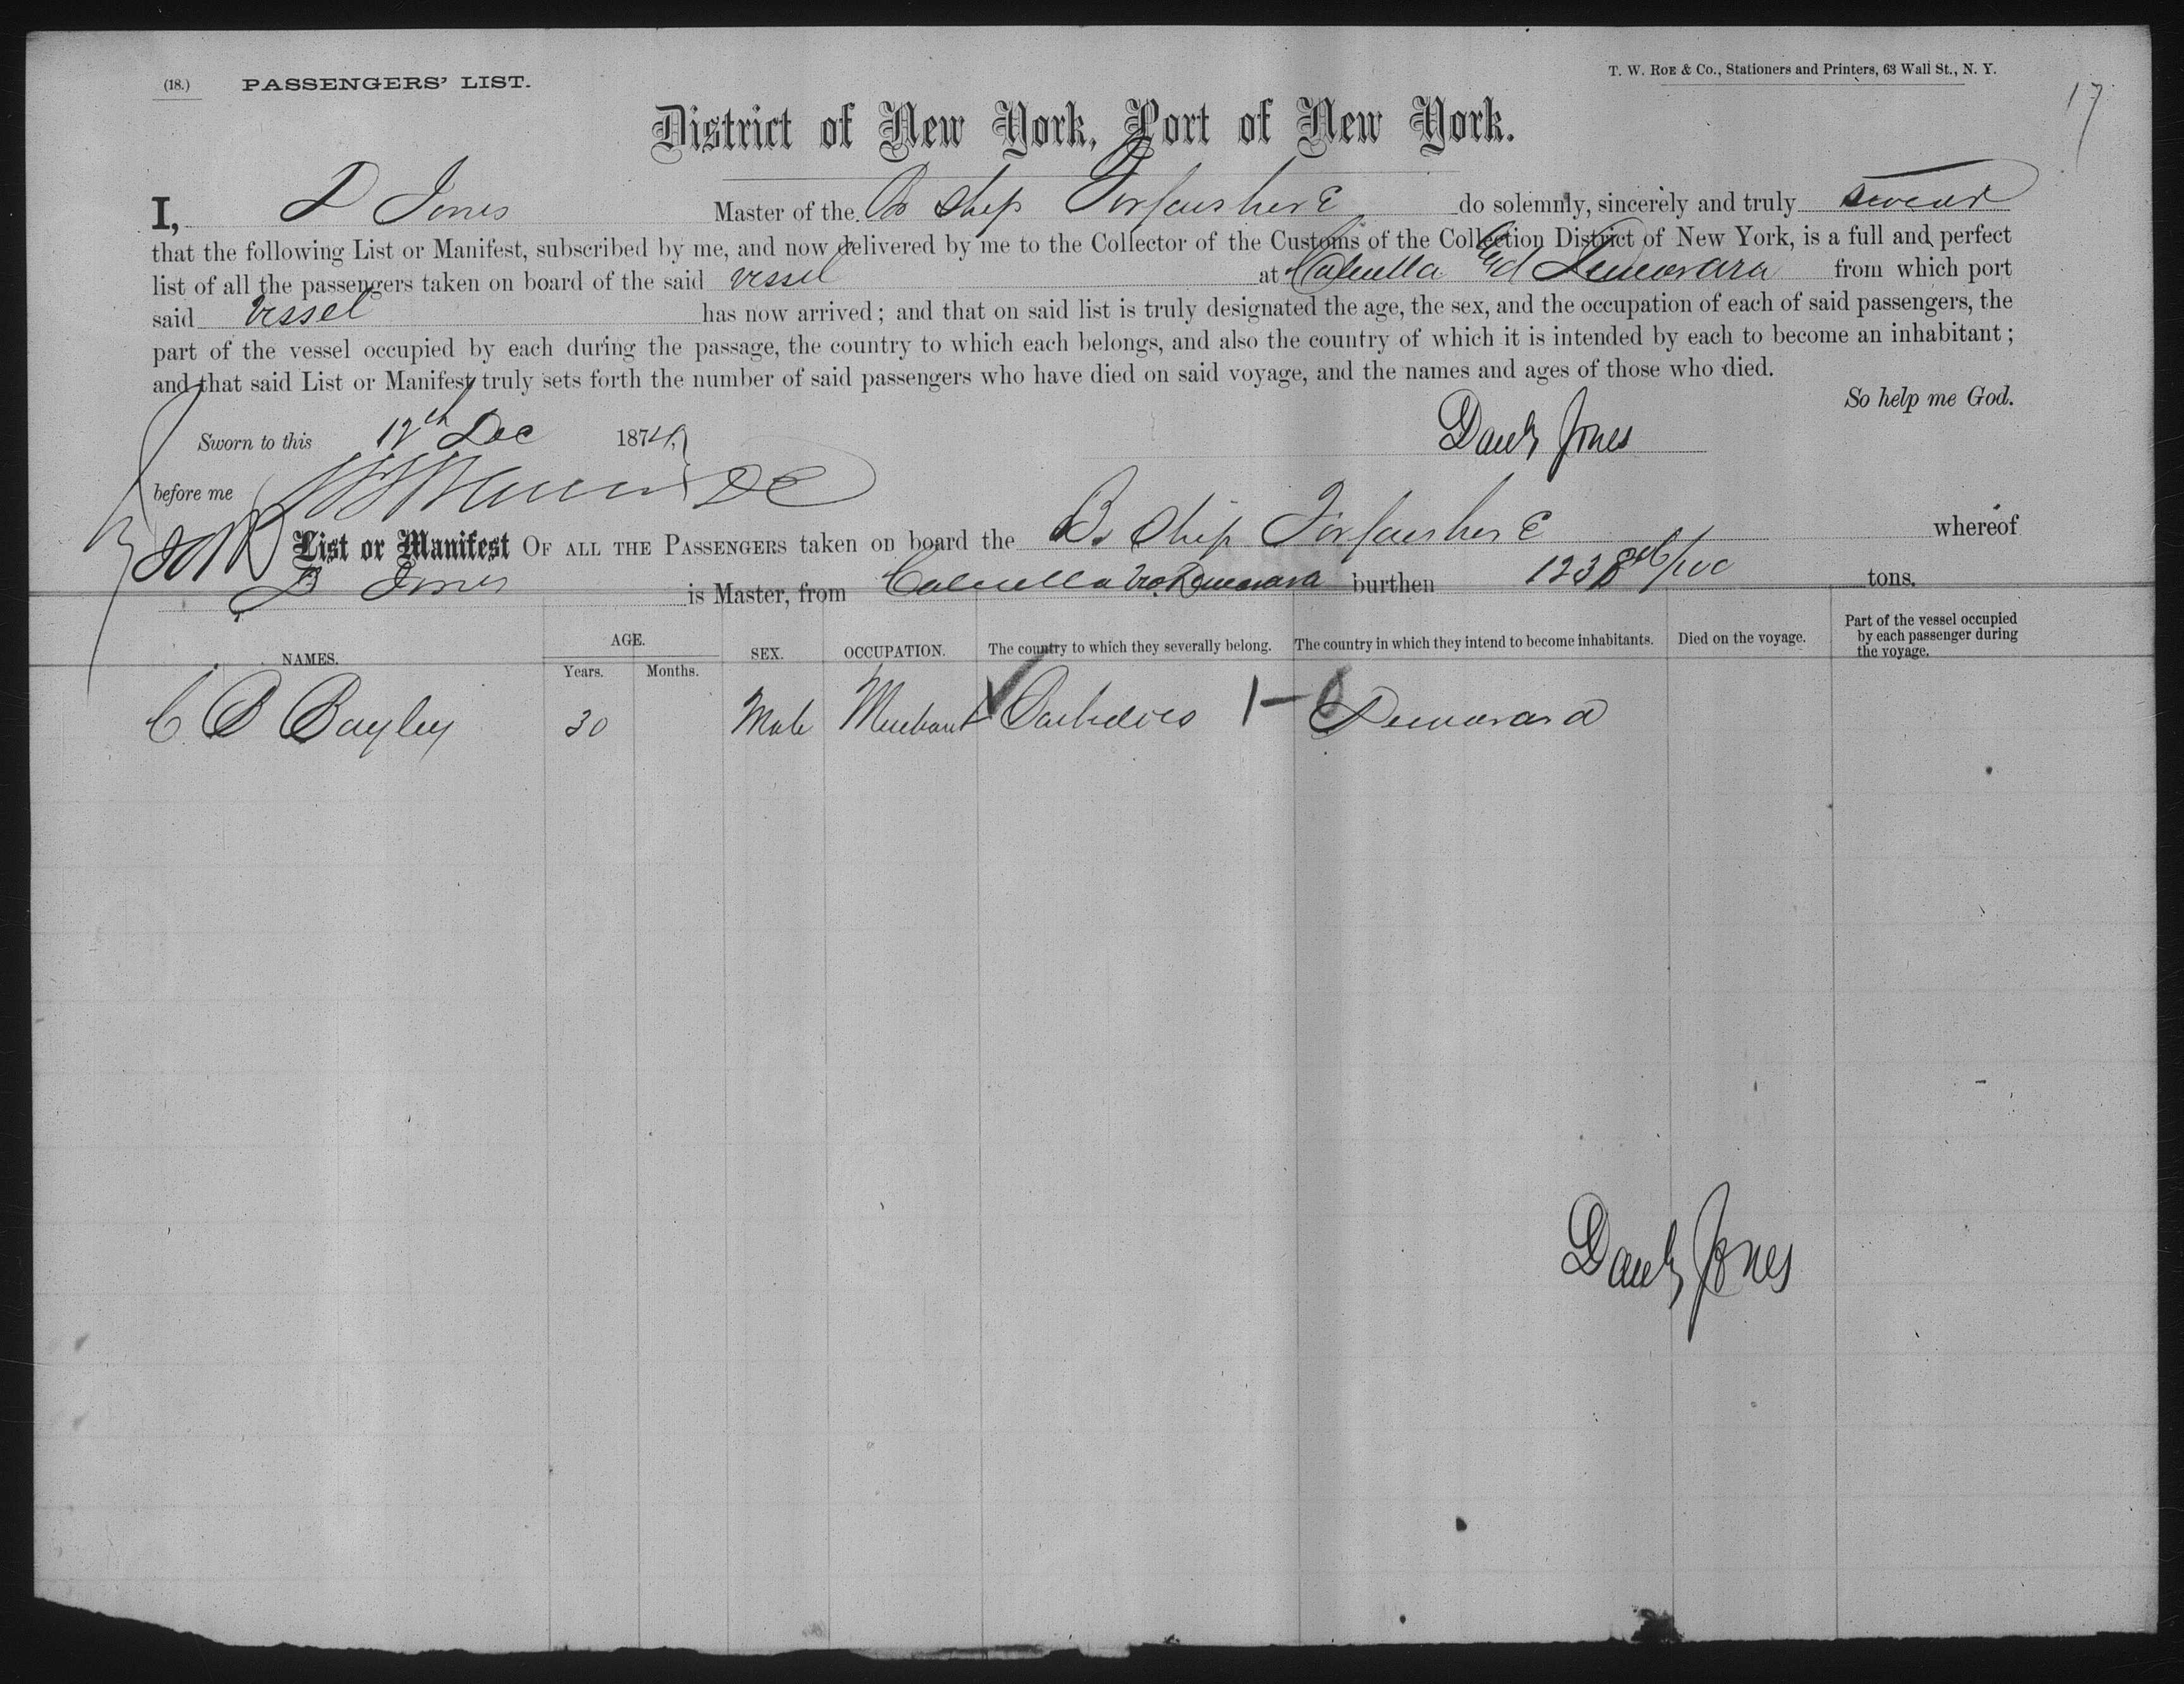 (18.) PASSENGERS' LIST.
T. W. ROE & Co., Stationers and Printers, 63 Wall St., N. Y.
17
District of New York, Port of New York.
I, D Jones Master of the Br Ship Forfarshire do solemnly, sincerely and truly swear
that the following List or Manifest, subscribed by me, and now delivered by me to the Collector of the Customs of the Collection District of New York, is a full and perfect
list of all the passengers taken on board of the said vessel at Calcutta and Demerara from which port
said vessel has now arrived; and that on said list is truly designated the age, the sex, and the occupation of each of said passengers, the
part of the vessel occupied by each during the passage, the country to which each belongs, and also the country of which it is intended by each to become an inhabitant;
and that said List or Manifest truly sets forth the number of said passengers who have died on said voyage, and the names and ages of those who died.
So help me God.
Sworn to this 12th Dec 1874
David Jones
before me
List or Manifest OF ALL THE PASSENGERS taken on board the Br Ship Forfarshire whereof
D Jones is Master, from Calcutta via Demerara burthen 1238 /100 tons.
NAMES. AGE. Years. Months. SEX. OCCUPATION. The country to which they severally belong. The country in which they intend to become inhabitants. Died on the voyage. Part of the vessel occupied by each passenger during the voyage.
C. B Bayley 30 Male Merchant Barbadoes Demerara
David Jones